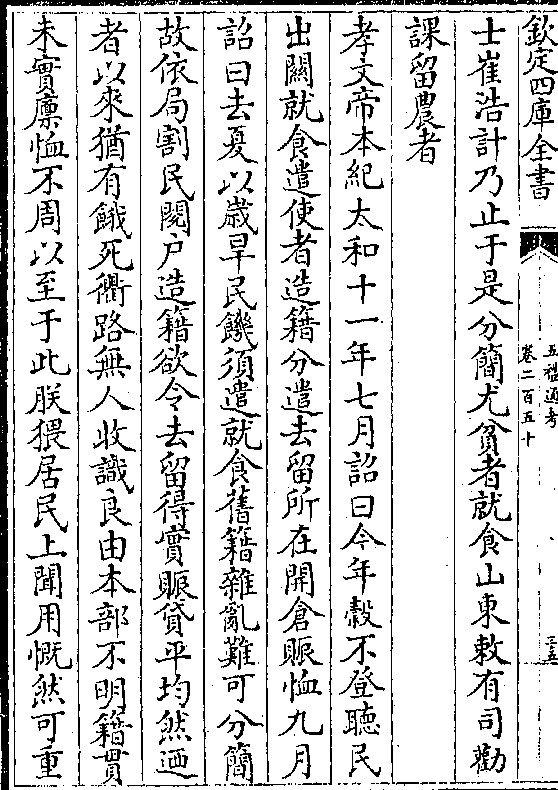 欽定四庫全書
五禮通考
卷二百五十
三五
士崔浩計乃止于是分簡尤貧者就食山東敕有司勸
課留農者
孝文帝本紀太和十一年七月詔曰今年穀不登聽民
出關就食遣使者造籍分遣去留所在開倉賑恤九月
詔曰去夏以歲旱民饑須遣就食舊籍雜亂難可分簡
故依局割民閱戶造籍欲令去留得實賑貸平均然迺
者以來猶有餓死衢路無人收識良由本部不明籍貫
未實廩恤不周以至于此朕猥居民上聞用慨然可重